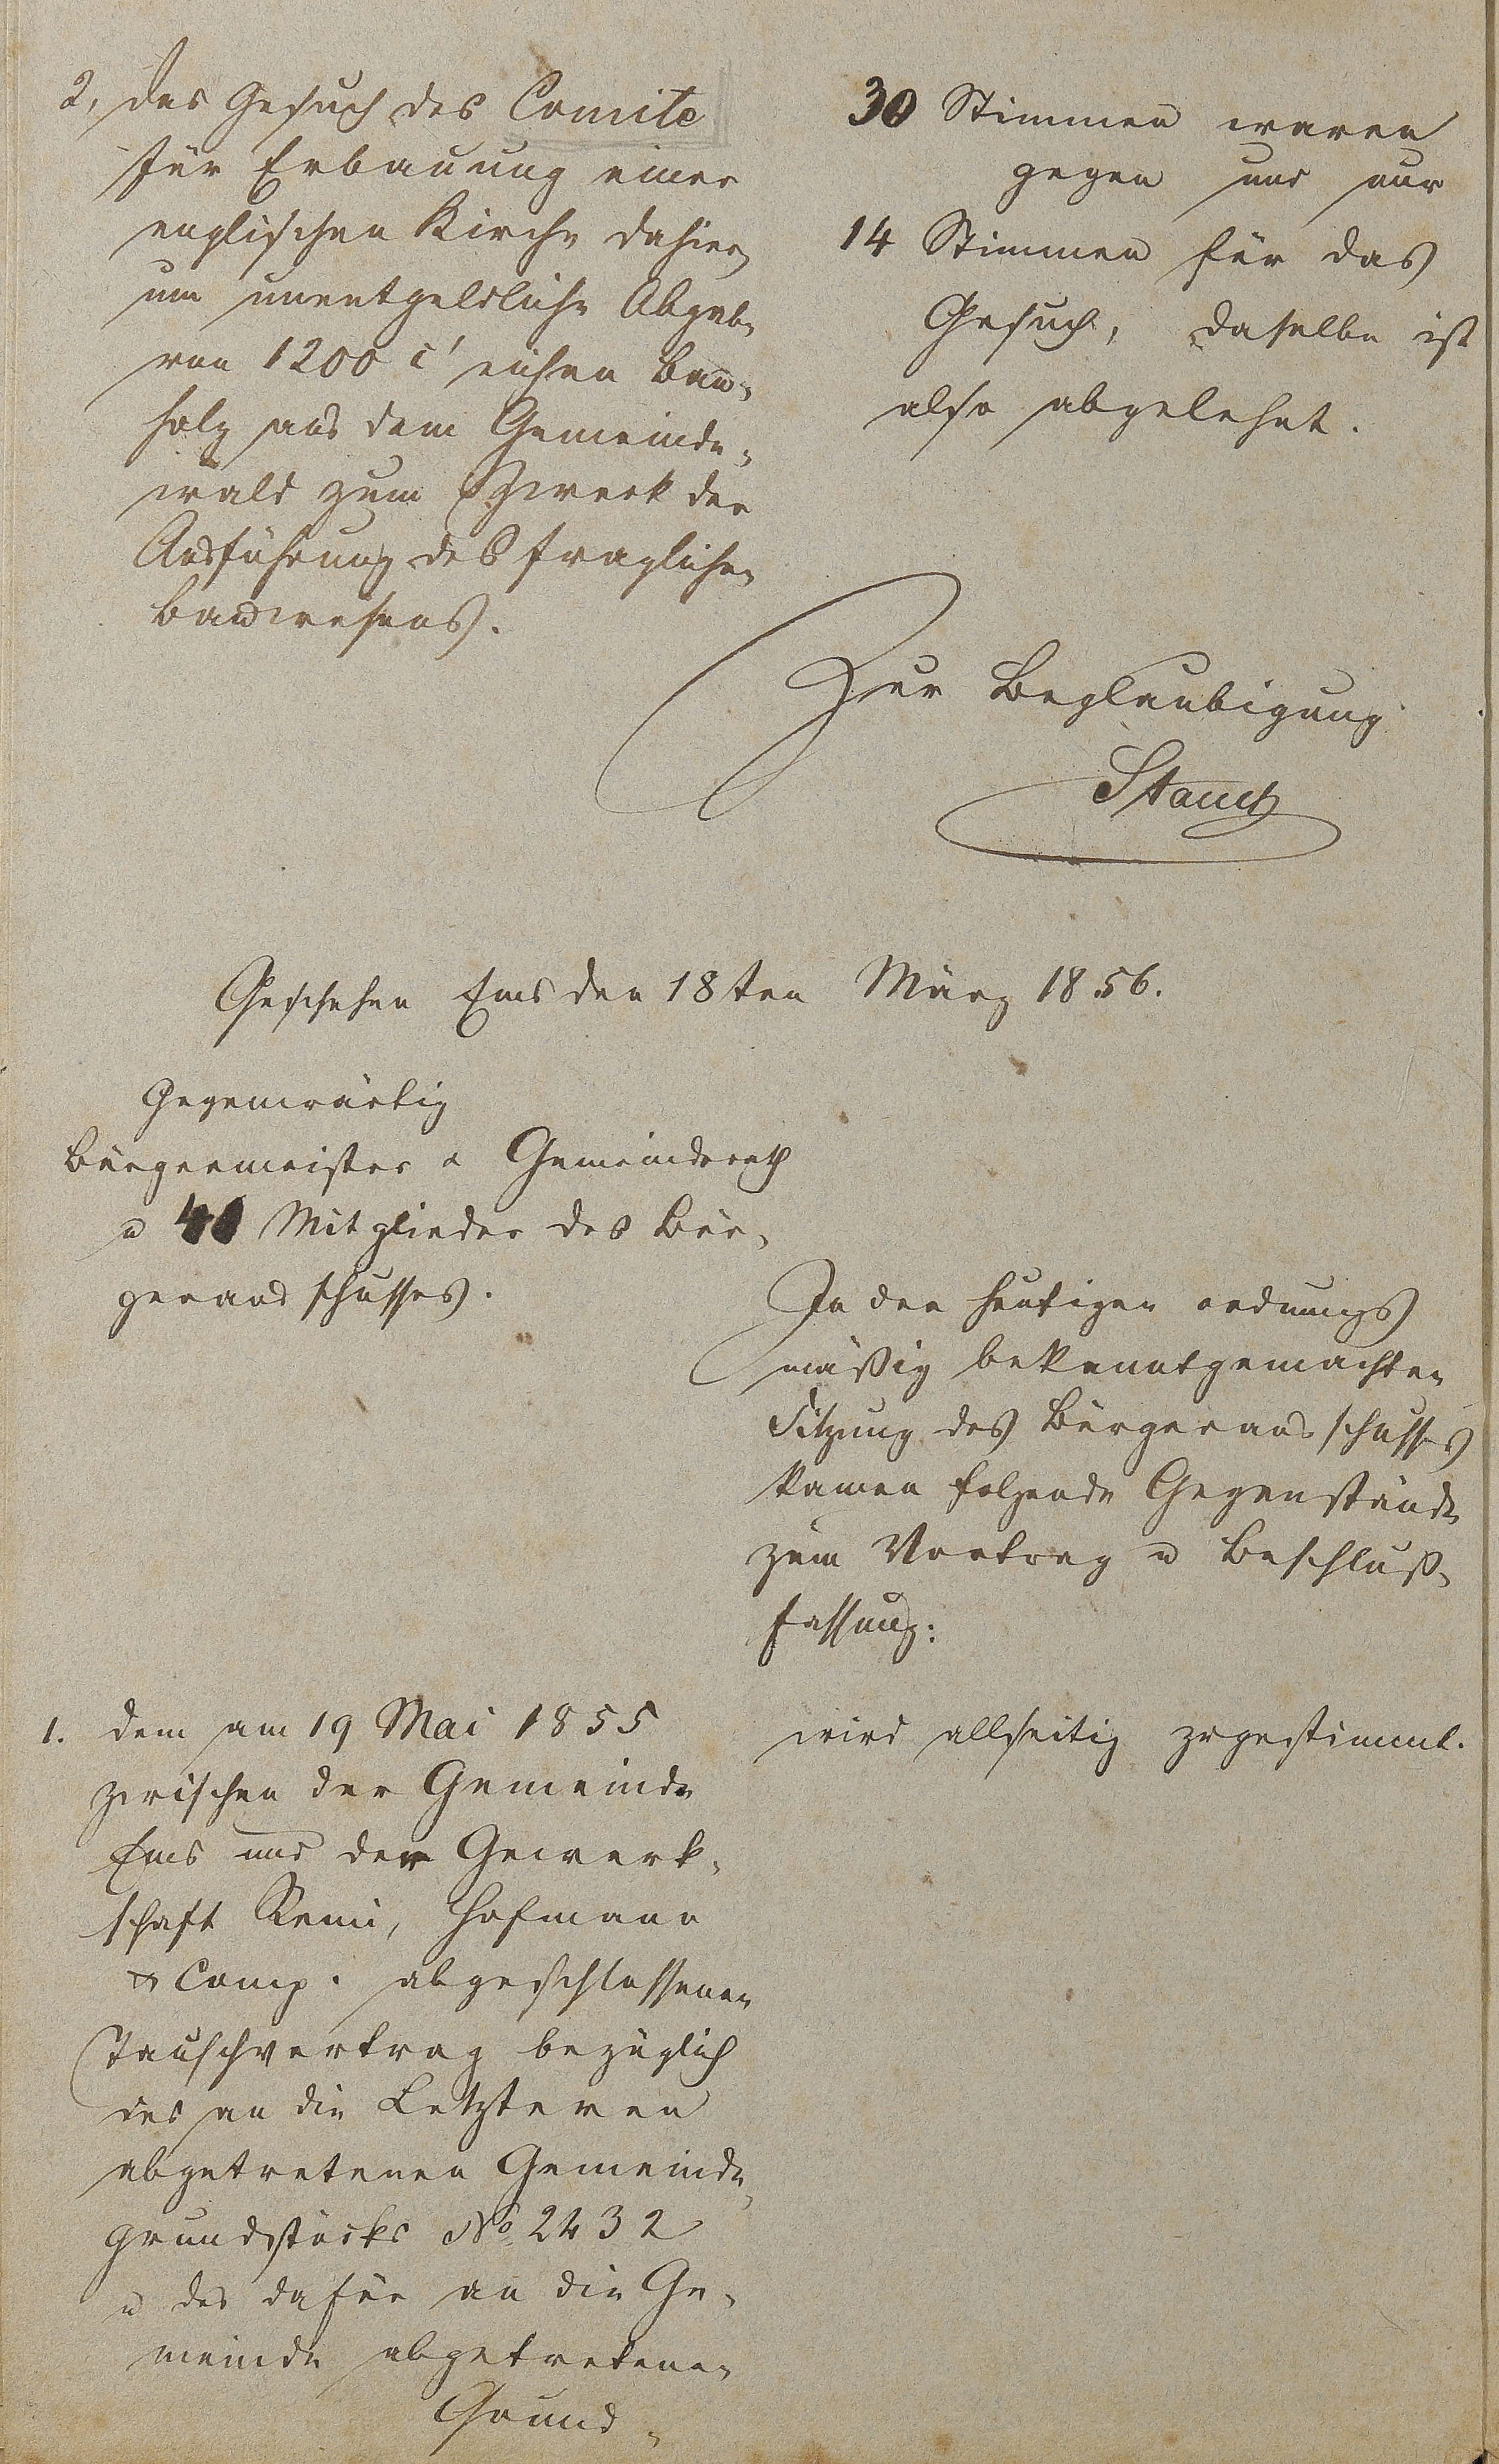 2, das Gesuch des Comite
für Erbauung einer
englischen Kirche dahier
um unentgeldliche Abgabe
von 1200 c' eichen Bau-
holz aus dem Gemeinde-
wald zum Zweck der
Ausführung des fraglichen
Bauwesens.
30 Stimmen waren
gegen und nur
14 Stimmen für das
Gesuch, dasselbe ist
also abgelehnt.
Zur Beglaubigung
Stauch
Geschehen Ems den 18ten März 1856.
Gegenwärtig
Bürgermeister & Gemeinderath
u Mitglieder des Bür-
gerausschusses.
In der heutigen ordnungs
mäßig bekanntgemachten
Sitzung des Bürgerausschusses
kamen folgende Gegenstände
zum Vortrag u Beschluß-
fassung:
1. dem am 19 Mai 1855
zwischen der Gemeinde
Ems und der Gewerk-
schaft Remi, Hofmann
& Comp. abgeschlossenen
Tauschvertrag bezüglich
des an die Letzteren
abgetretenen Gemeinde-
grundstücks No 2432
u des dafür an die Ge-
meinde abgetretenen
Grund-
wird allseitig zugestimmt.